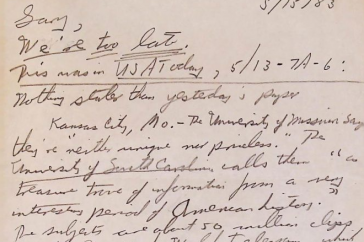 5/15/83
Gary,
We're too late.
This was in USA Today, 5/13-7A-6:
Nothing staler than yesterday's paper
Kansas City, Mo. - The University of Missouri says
they're neither unique nor priceless." The
University of South Carolina calls them "a
treasure trove of information from a very
interesting period of American history."
The subjects are about 50 million clips